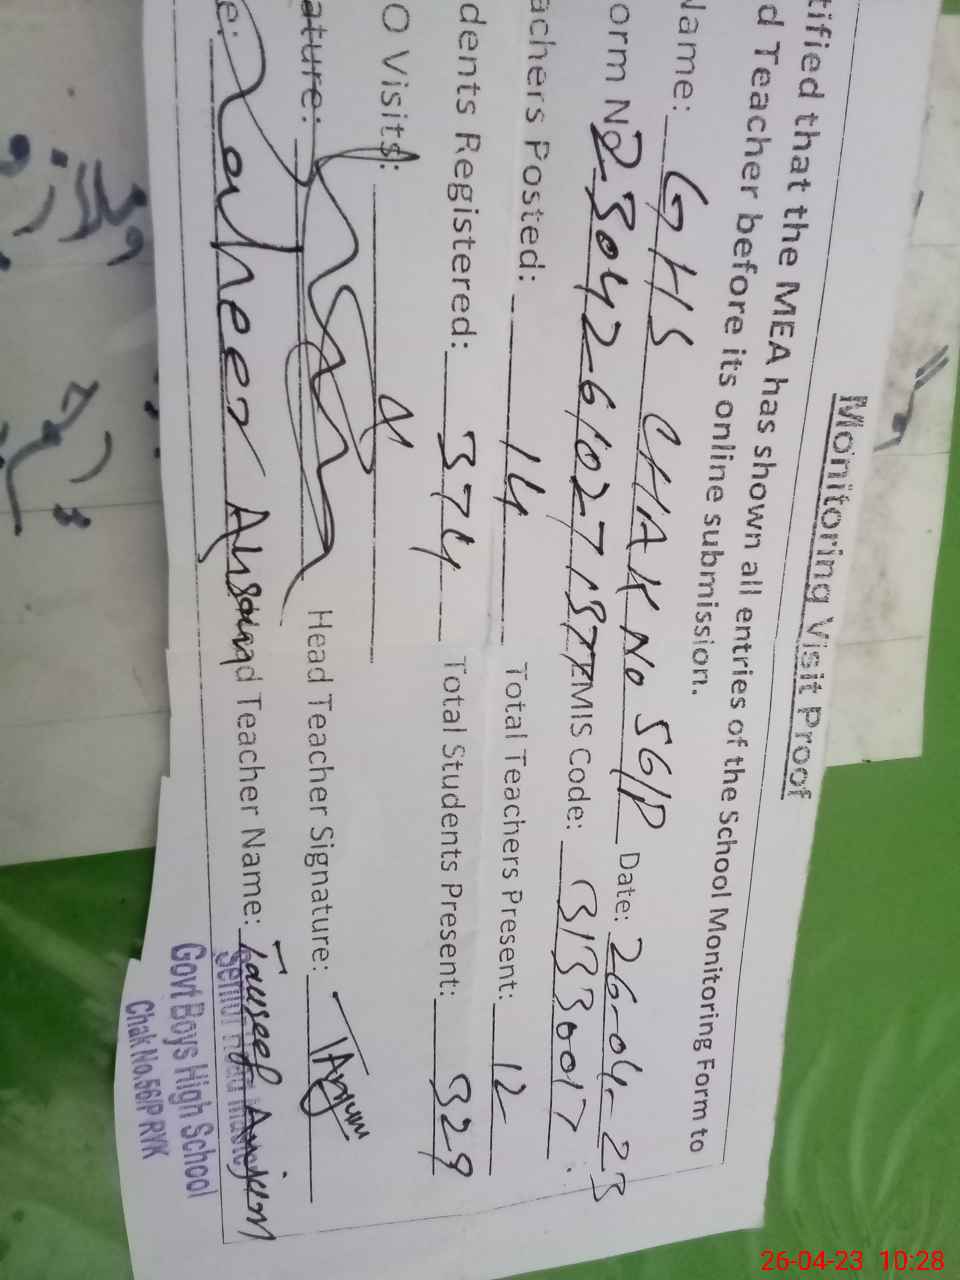 Monitoring Visit Proof
tified that the MEA has shown all entries of the School Monitoring Form to
d Teacher before its online submission.
Name: GHS CHAK No 56/P Date: 26-04-23
orm No 23042610271377 EMIS Code: 31330017
achers Posted: 14 Total Teachers Present: 12
dents Registered: 374 Total Students Present: 329
O Visits: 4
ature: Head Teacher Signature: TAnjum
e: Zaheer Ahmad d Teacher Name: Tauseef Anjum
Senior Head Master
Govt Boys High School
Chak No.56/P RYK
26-04-23 10:28